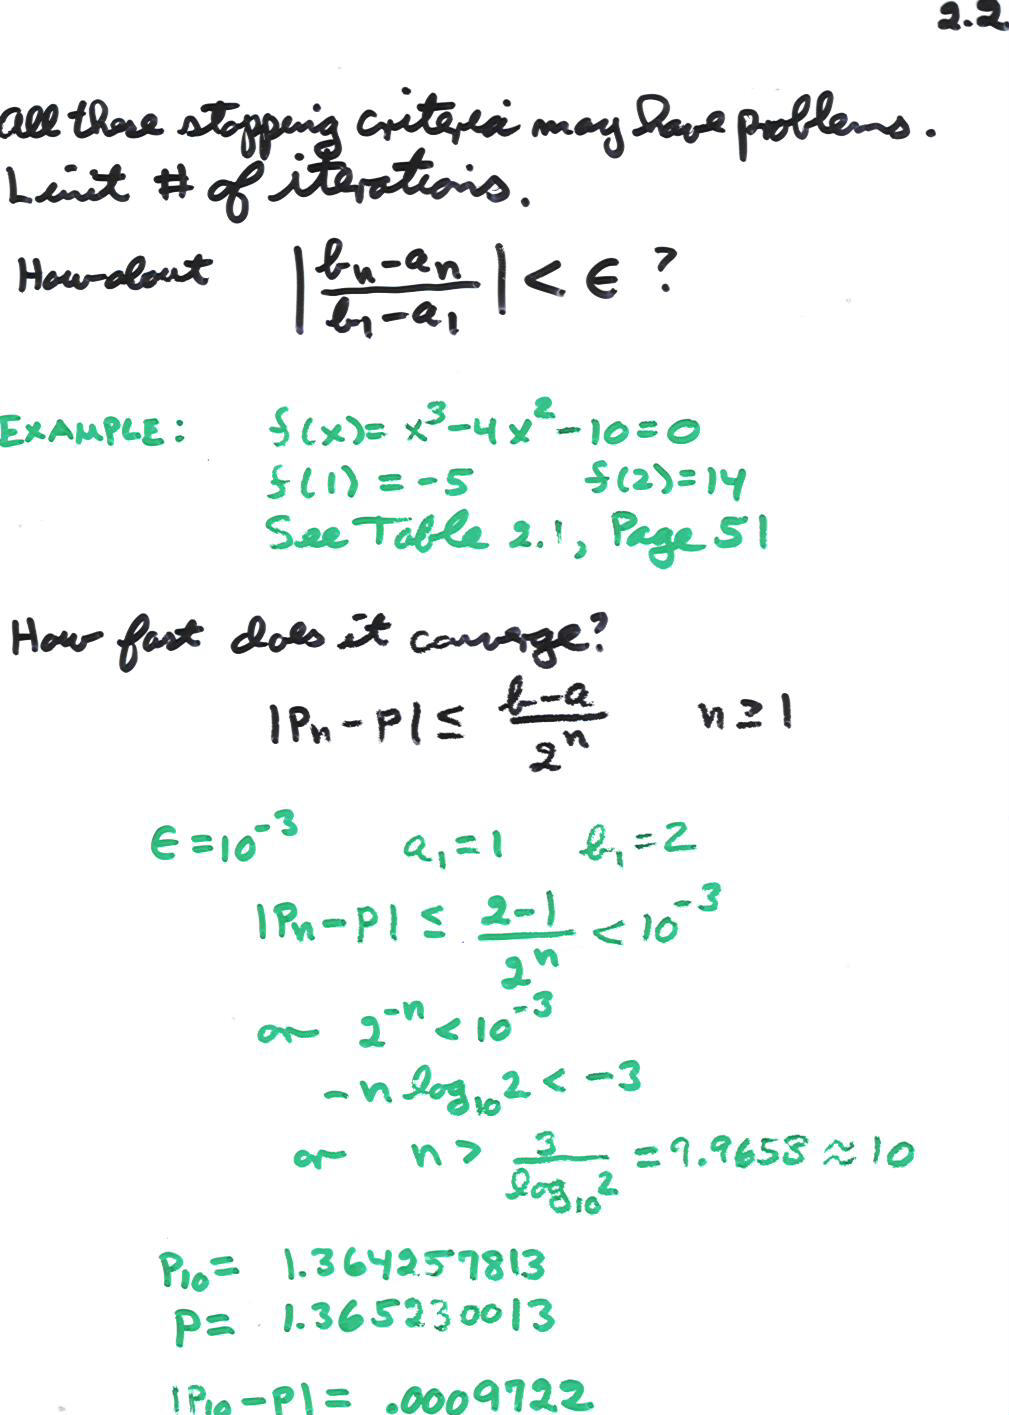 2.2
All these stopping criteria may have problems.
Limit # of iterations.
How about |(bₙ-aₙ)/(b₁-a₁)| < ϵ ?
EXAMPLE: f(x)= x³-4x²-10=0
f(1)=-5 f(2)=14
See Table 2.1, Page 51
How fast does it converge?
|Pₙ-P| ≤ (b-a)/2ⁿ n≥1
ϵ=10⁻³ a₁=1 b₁=2
|Pₙ-P| ≤ (2-1)/2ⁿ < 10⁻³
or 2⁻ⁿ < 10⁻³
-n log₁₀2 < -3
or n > 3/log₁₀2 = 9.9658 ≈ 10
P₁₀= 1.364257813
P= 1.365230013
|P₁₀-P|= .0009722